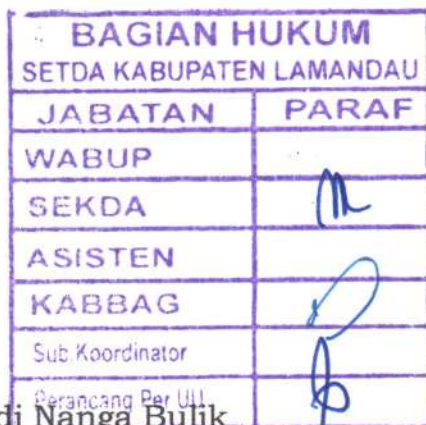 BAGIAN HUKUM
SETDA KABUPATEN LAMANDAU
JABATAN PARAF
WABUP
SEKDA
ASISTEN
KABBAG
Sub.Koordinator
Perancang Per UU
di Nanga Bulik